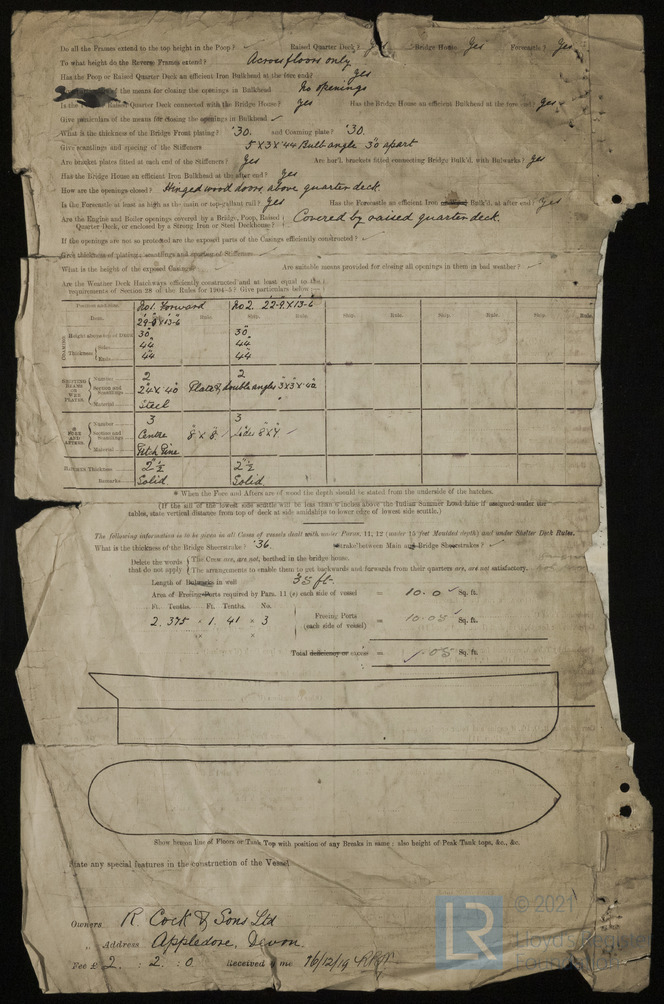 Do all the Frames extend to the top height in the Poop? ✓ Raised Quarter Deck? Yes Bridge House Yes Forecastle? Yes
To what height do the Reverse Frames extend? Across floors only
Has the Poop or Raised Quarter Deck an efficient Iron Bulkhead at the fore end? Yes
of the means for closing the openings in Bulkhead No openings
Is the Quarter Deck connected with the Bridge House? Yes Has the Bridge House an efficient Bulkhead at the fore end? Yes
Give particulars of the means for closing the openings in Bulkhead ✓
What is the thickness of the Bridge Front plating? '30. and Coaming plate? '30.
Give scantlings and spacing of the Stiffeners 5 x 3 x '44 Bulb angle 30 apart
Are bracket plates fitted at each end of the Stiffeners? Yes Are hor'l. brackets fitted connecting Bridge Bulk'd. with Bulwarks? Yes
Has the Bridge House an efficient Iron Bulkhead at the after end? Yes
How are the openings closed? Hinged wood doors above quarter deck.
Is the Forecastle at least as high as the main or top-gallant rail? Yes Has the Forecastle an efficient Iron Bulk'd. at after end? Yes
Are the Engine and Boiler openings covered by a Bridge, Poop, Raised Quarter Deck, or enclosed by a Strong Iron or Steel Deckhouse? Covered by raised quarter deck.
If the openings are not so protected are the exposed parts of the Casings efficiently constructed? ✓
Give thickness of plating; scantlings and spacing of Stiffeners
What is the height of the exposed Casings? ✓ Are suitable means provided for closing all openings in them in bad weather? ✓
Are the Weather Deck Hatchways efficiently constructed and at least equal to the requirements of Section 28 of the Rules for 1904-5? Give particulars below:—
Position and size No 1. Forward No 2. 22-9 x 13-6
Item. 29-9 x 13-6 Rule. Rule. Ship. Rule. Ship. Rule. Ship. Rule.
COAMING Height above top of Deck 30 30
Thickness Sides 44 44
Ends 44 44
SHIFTING BEAMS OR WEB PLATES Number 2 2
Section and Scantlings 24 x '40 Plate & double angles 3 x 3 x '40.
Material Steel "
* FORE AND AFTERS. Number 3 3
Section and Scantlings Centre 8 x 8 ✓ Sides 8 x 7 ✓
Material Pitch Pine
HATCHES Thickness 2½ 2½
Remarks Solid Solid
* When the Fore and Afters are of wood the depth should be stated from the underside of the hatches.
(If the sill of the lowest side scuttle will be less than 9 inches above the Indian Summer Load Line if assigned under the
tables, state vertical distance from top of deck at side amidships to lower edge of lowest side scuttle.)
The following information is to be given in all Cases of vessels dealt with under Paras. 11, 12 (under 15 feet Moulded depth) and under Shelter Deck Rules.
What is the thickness of the Bridge Sheerstrake? '36. Strake between Main and Bridge Sheerstrakes? ✓
Delete the words that do not apply The Crew are, are not, berthed in the bridge house.
The arrangements to enable them to get backwards and forwards from their quarters are, are not satisfactory.
Length of Bulwarks in well 35 ft.
Area of Freeing Ports required by Para. 11 (e) each side of vessel = 10.0 Sq. ft.
Ft. Tenths. Ft. Tenths. No.
2. 375 × 1. 41 × 3 Freeing Ports (each side of vessel) = 10.05 Sq. ft.
Total deficiency or excess = .05 Sq. ft.
Show bottom line of Floors or Tank Top with position of any Breaks in same; also height of Peak Tank tops, &c., &c.
State any special features in the construction of the Vessel
Owners R. Cock & Sons Ltd
" Address Appledore, Devon.
Fee £ 2 : 2 : 0 Received by me 16/12/19
LR © 2021
Lloyd's Register
Foundation